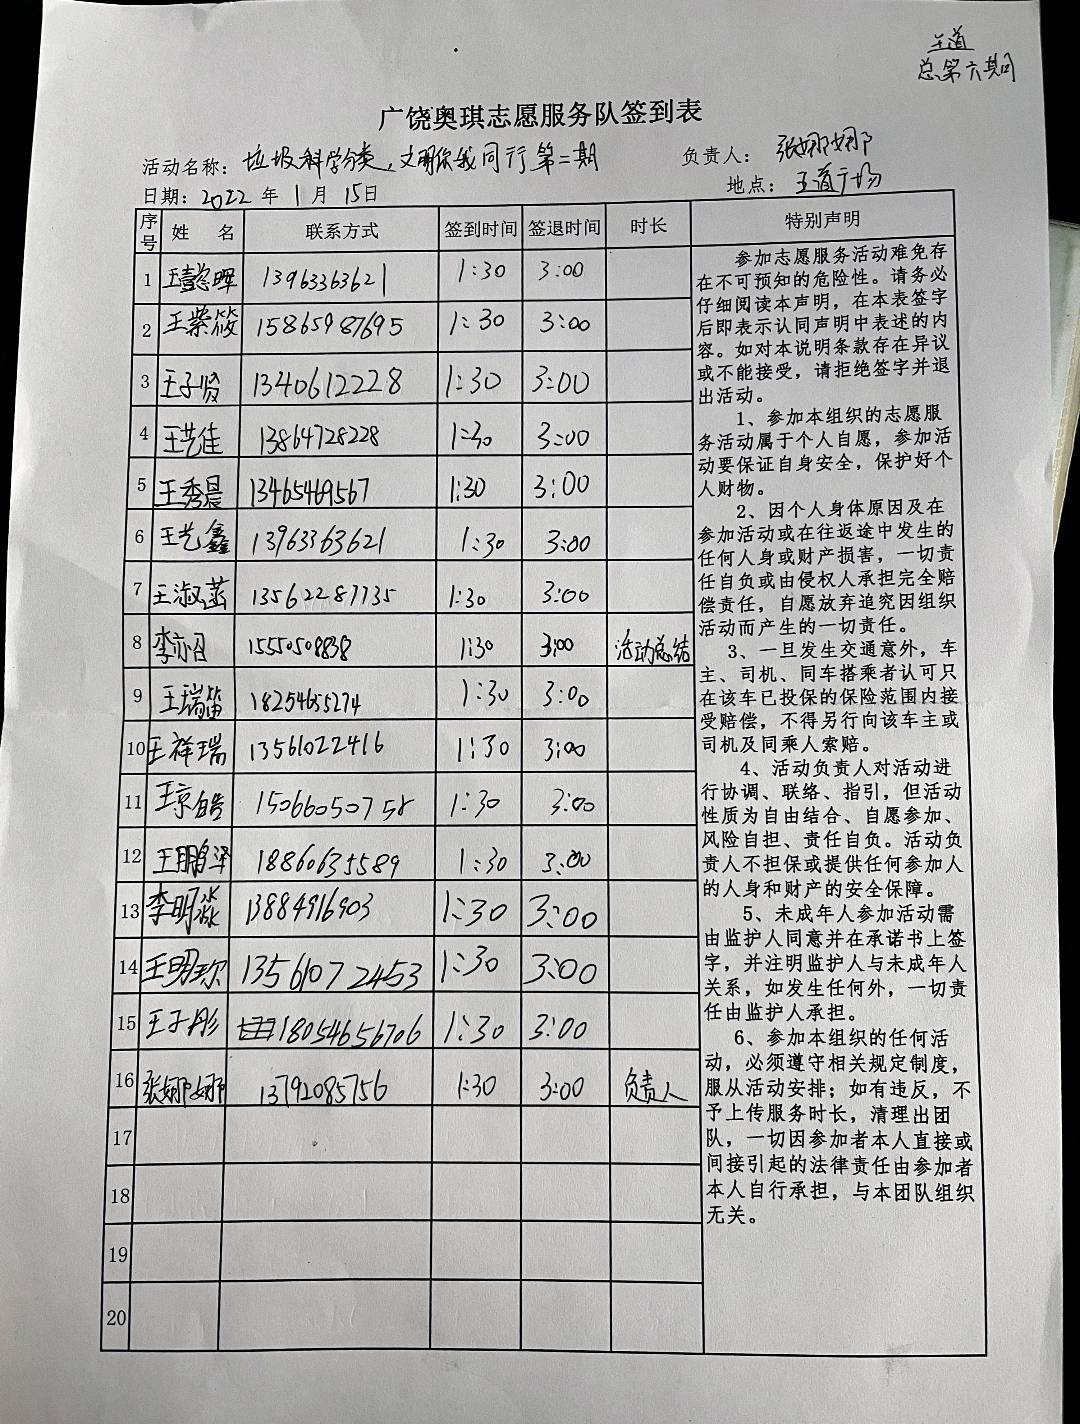 王道
总第六期
广饶奥琪志愿服务队签到表
活动名称：垃圾科学分类，文明你我同行第二期 负责人：张娜娜
日期：2022年1月15日 地点：王道广场
序号 姓名 联系方式 签到时间 签退时间 时长 特别声明
1 王懿晖 13963363621 1:30 3:00
2 王紫筱 15865987695 1:30 3:00
3 王子贤 13406122228 1:30 3:00
4 王艺佳 13864728228 1:30 3:00
5 王秀晨 13465469567 1:30 3:00
6 王艺鑫 13963363621 1:30 3:00
7 王淑菡 13562287735 1:30 3:00
8 李亦 15550508838 1:30 3:00 活动总结
9 王瑞笛 18254655274 1:30 3:00
10 王祥瑞 13561022416 1:30 3:00
11 王京皓 15066050758 1:30 3:00
12 王鹏泽 18860635589 1:30 3:00
13 李明淼 13884916903 1:30 3:00
14 王明珎 13561072453 1:30 3:00
15 王子彤 18054656706 1:30 3:00
16 张娜娜 13792085756 1:30 3:00 负责人
17
18
19
20
参加志愿服务活动难免存
在不可预知的危险性。请务必
仔细阅读本声明，在本表签字
后即表示认同声明中表述的内
容。如对本说明条款存在异议
或不能接受，请拒绝签字并退
出活动。
1、参加本组织的志愿服
务活动属于个人自愿，参加活
动要保证自身安全，保护好个
人财物。
2、因个人身体原因及在
参加活动或在往返途中发生的
任何人身或财产损害，一切责
任自负或由侵权人承担完全赔
偿责任，自愿放弃追究因组织
活动而产生的一切责任。
3、一旦发生交通意外，车
主、司机、同车搭乘者认可只
在该车已投保的保险范围内接
受赔偿，不得另行向该车主或
司机及同乘人索赔。
4、活动负责人对活动进
行协调、联络、指引，但活动
性质为自由结合、自愿参加、
风险自担、责任自负。活动负
责人不担保或提供任何参加人
的人身和财产的安全保障。
5、未成年人参加活动需
由监护人同意并在承诺书上签
字，并注明监护人与未成年人
关系，如发生任何外，一切责
任由监护人承担。
6、参加本组织的任何活
动，必须遵守相关规定制度，
服从活动安排；如有违反，不
予上传服务时长，清理出团
队，一切因参加者本人直接或
间接引起的法律责任由参加者
本人自行承担，与本团队组织
无关。